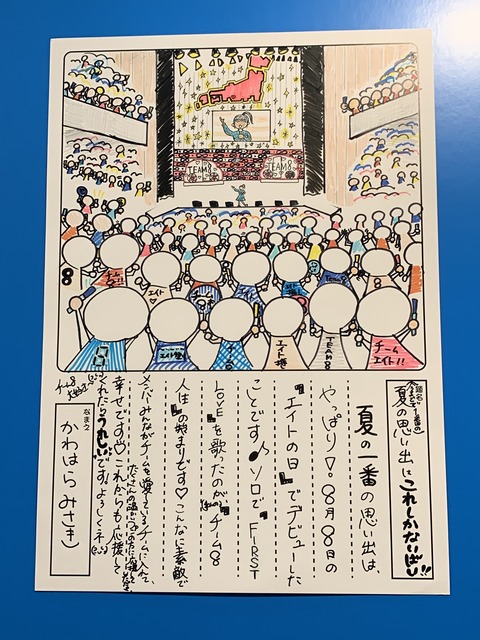 TEAM8
TEAM8
8
エイト
TEAM
8
チーム
エイト!!
題名
夏の思い出はこれしかないばい!!
夏の一番の思い出は、
やっぱり♡8月8日の
『エイトの日』でデビューした
ことです♪ソロで『FIRST
LOVE』を歌ったのが(私の)『チーム8
人生』の始まりです♡こんなに素敵で
メンバーみんながチームを愛しているチームに入れて、
幸せです♡これからも応援して
くれたらうれしいです!よろしくネ!
なまえ
かわはらみさき